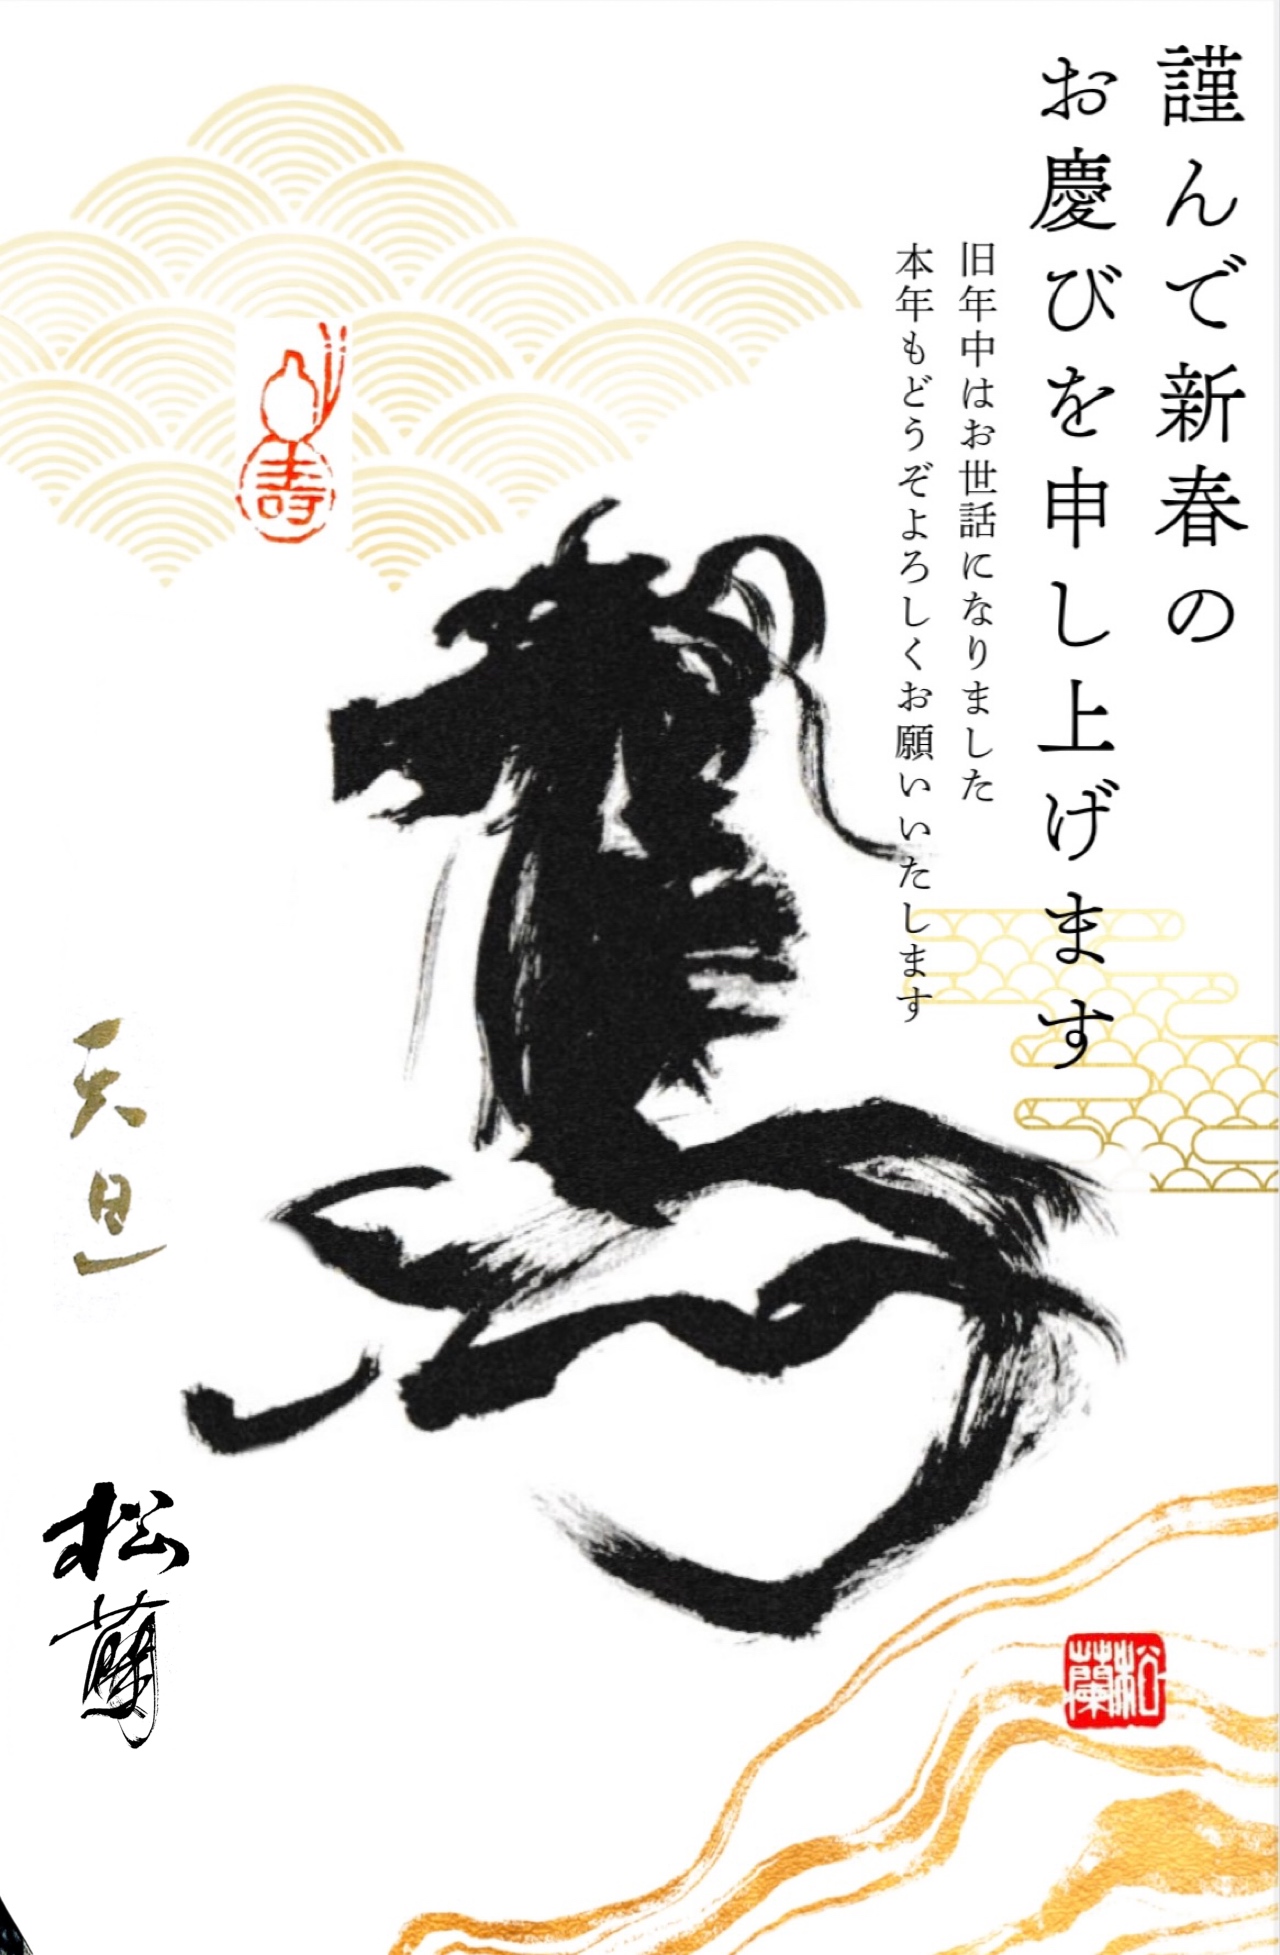 謹んで新春の
お慶びを申し上げます
旧年中はお世話になりました
本年もどうぞよろしくお願いいたします
寿
元旦
松蘭
松蘭